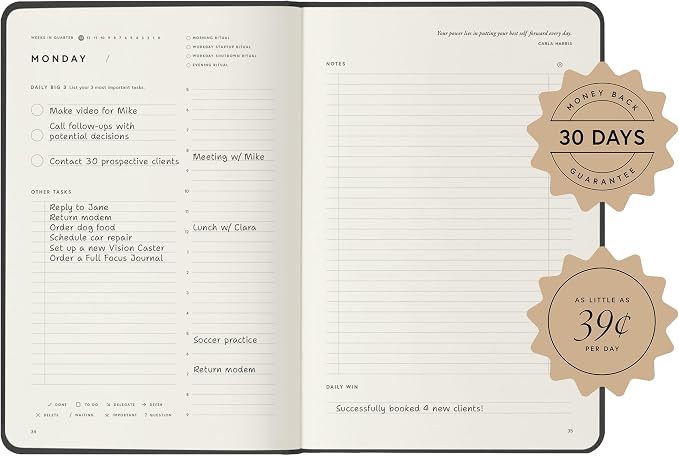 WEEKS IN QUARTER 13 12 11 10 9 8 7 6 5 4 3 2 1 0
MONDAY /
DAILY BIG 3 List your 3 most important tasks.
Make video for Mike
Call follow-ups with
potential decisions
Contact 30 prospective clients
OTHER TASKS
Reply to Jane
Return modem
Order dog food
Schedule car repair
Set up a new Vision Caster
Order a Full Focus Journal
DONE TO DO DELEGATE DEFER
DELETE WAITING IMPORTANT ? QUESTION
34
MORNING RITUAL
WORKDAY STARTUP RITUAL
WORKDAY SHUTDOWN RITUAL
EVENING RITUAL
5
6
7
8 Meeting w/ Mike
9
10
11
12 Lunch w/ Clara
1
2
3
4
5 Soccer practice
6
7 Return modem
8
9
Your power lies in putting your best self forward every day.
CARLA HARRIS
NOTES
DAILY WIN
Successfully booked 4 new clients!
35
MONEY BACK
30 DAYS
GUARANTEE
AS LITTLE AS
39¢
PER DAY